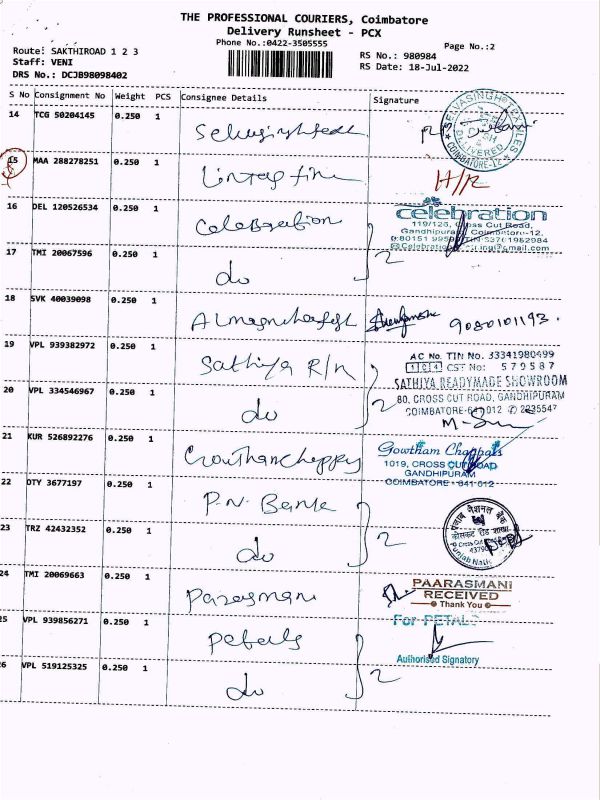 THE PROFESSIONAL COURIERS, Coimbatore
Delivery Runsheet - PCX
Phone No.:0422-3505555
Page No.:2
Route: SAKTHIROAD 1 2 3
Staff: VENI
DRS No.: DCJB98098402
RS No.: 980984
RS Date: 18-Jul-2022
S No Consignment No Weight PCS Consignee Details Signature
14 TCG 50204145 0.250 1
SELVASINGH TEXTILES
DELIVERED
COIMBATORE-12
15 MAA 288278251 0.250 1
H/R
16 DEL 120526534 0.250 1 Celebration
celebration
119/126, Cross Cut Road,
Gandhipuram Coimbatore-12.
17 TMI 20067596 0.250 1 do 2
18 SVK 40039098 0.250 1
9080101193.
19 VPL 939382972 0.250 1 Sathiya R/M
AC No. TIN No. 33341980499
CST No: 579587
SATHIYA READYMADE SHOWROOM
80, CROSS CUT ROAD, GANDHIPURAM
COIMBATORE-641 012 ✆ 2235547
20 VPL 334546967 0.250 1 do 2
21 KUR 526892276 0.250 1
Gowtham Chappals
1019, CROSS CUT ROAD
GANDHIPURAM
COIMBATORE - 641 012
22 DTY 3677197 0.250 1 P.N. Bank
पंजाब नैशनल बैंक
23 TRZ 42432352 0.250 1 do 2
24 TMI 20069663 0.250 1 Parasmani
PAARASMANI
RECEIVED
Thank You
25 VPL 939856271 0.250 1 Petals
For PETALS
Authorised Signatory
26 VPL 519125325 0.250 1 do 2